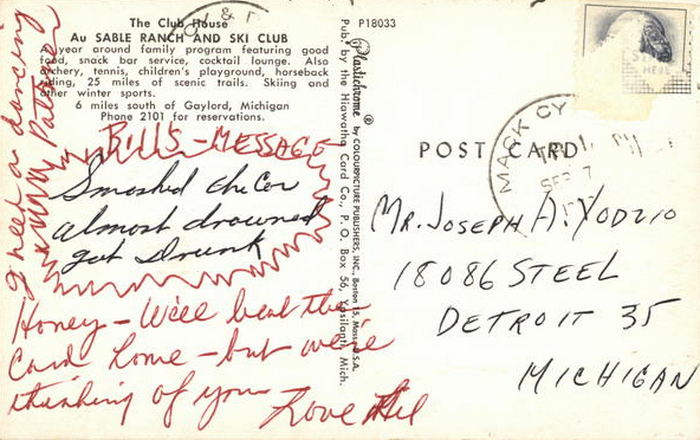 The Club House
Au SABLE RANCH AND SKI CLUB
year around family program featuring good
food, snack bar service, cocktail lounge. Also
archery, tennis, children's playground, horseback
riding, 25 miles of scenic trails. Skiing and
other winter sports.
6 miles south of Gaylord, Michigan
Phone 2101 for reservations.
I need a dancing
Partner
BILLS - MESSAGE
Smashed the Car
almost drowned
got Drunk
Honey - We'll beat the
Card home - but we're
thinking of you Love
Plastichrome ® by COLOURPICTURE PUBLISHERS, INC., Boston 15, Mass., U.S.A.
Pub. by the Hiawatha Card Co., P. O. Box 56, Ypsilanti, Mich.
P18033
POST CARD
MACK CY
SEP 7
MR. JOSEPH A. YODZIO
18086 STEEL
DETROIT 35
MICHIGAN